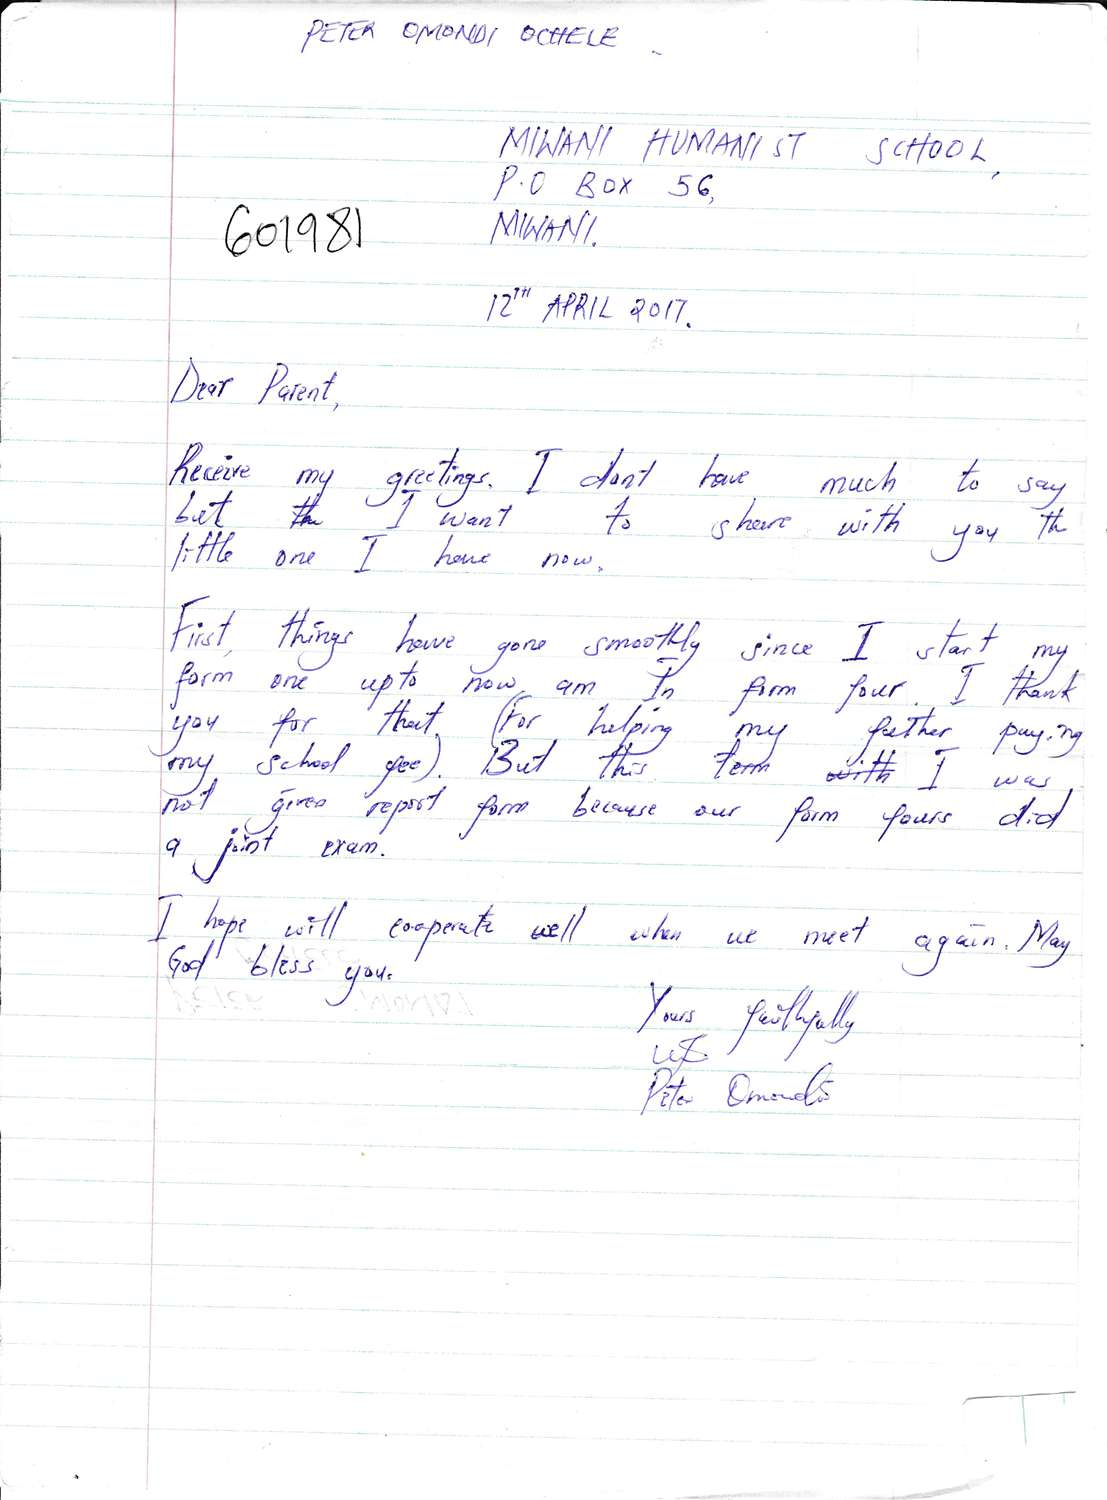 PETER OMONDI OCHELE
MIWANI HUMANIST SCHOOL,
P.O BOX 56,
601981
MIWANI.
12TH APRIL 2017.
Dear Parent,
Receive my greetings. I dont have much to say
but I want to share with you the
little one I have now.
First, things have gone smoothly since I start my
form one upto now am In form four. I thank
you for that. (For helping my father paying
my school fee). But this term with I was
not given report form because our form fours did
a joint exam.
I hope will cooperate well when we meet again. May
God bless you.
Yours faithfully
Peter Omondi